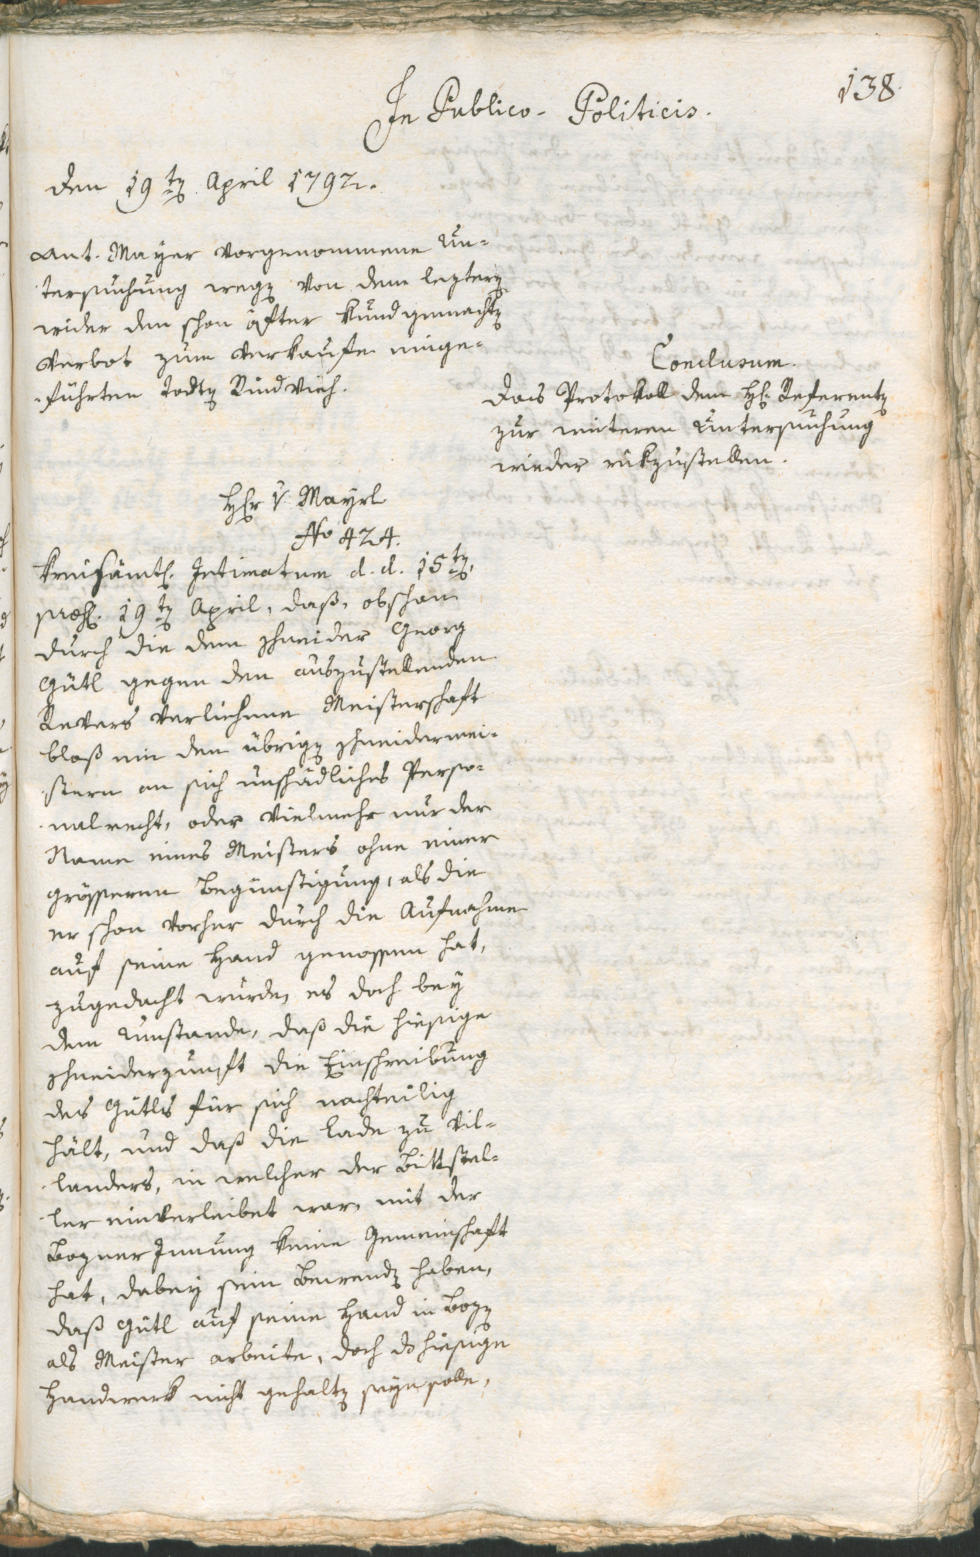 138.
In Publico-Politicis.
den 19ten April 1792.
Ant. Mayer vorgenommene Un-
tersuchung wegen von dem leztern
wider den schon öfter kundgemachten
Verbot zum Verkaufe einge-
führten todten Rindvieh.
Conclusum.
Das Protokoll dem H: Referenten
zur weiteren Untersuchung
wieder rükzustellen.
Hr v. Mayrl
No 424.
Kreisämtl. Intimatum d. d. 15ten,
præs. 19ten April, daß, obschon
durch die dem Schneider Georg
Gütl gegen den auszustellenden
Revers verliehene Meisterschaft
bloß ein den übrigen Schneidermei-
stern an sich unschädliches Perso-
nalrecht, oder vielmehr nur der
Name eines Meisters ohne einer
grösseren Begünstigung, als die
er schon vorher durch die Aufnahme
auf seine Hand genossen hat,
zugedacht wurde, es doch bey
dem Umstande, daß die hiesige
Schneiderzunft die Einschreibung
des Gütls für sich nachteilig
hält, und daß die Lade zu Vil-
landers, in welcher der Bittstel-
ler einverleibet war, mit der
Bozner Innung keine Gemeinschaft
hat, dabey sein Bewenden haben,
daß Gütl auf seine Hand in Bozen
als Meister arbeite, doch das hiesige
Handwerk nicht gehalten seyn solle,